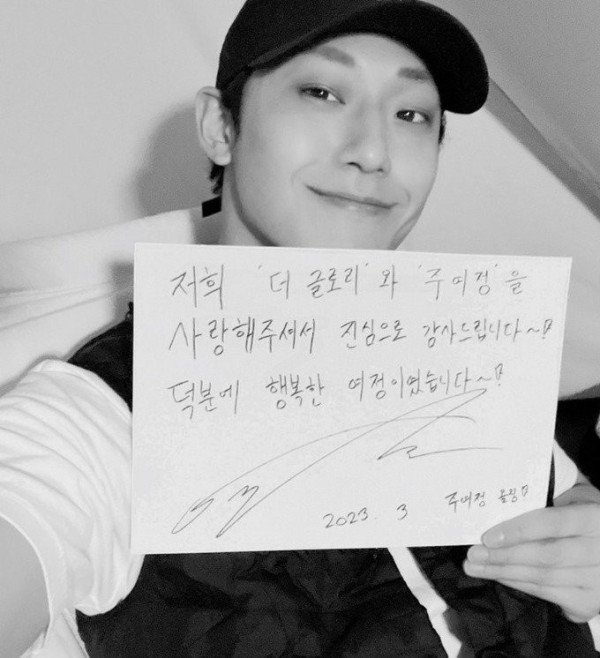 저희 '더 글로리'와 '주여정'을
사랑해주셔서 진심으로 감사드립니다~♡
덕분에 행복한 여정이었습니다~♡
2023. 3 주여정 올림♡